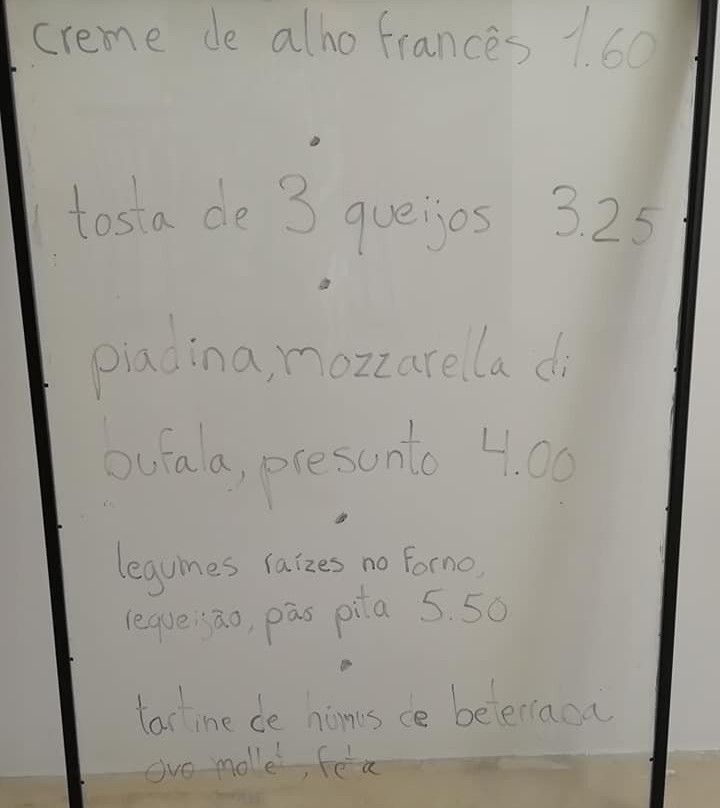 creme de alho francês 1.60
tosta de 3 queijos 3.25
piadina, mozzarella di
bufala, presunto 4.00
legumes raízes no forno,
requeijão, pão pita 5.50
tartine de húmus de beterraba
ovo mollet, feta